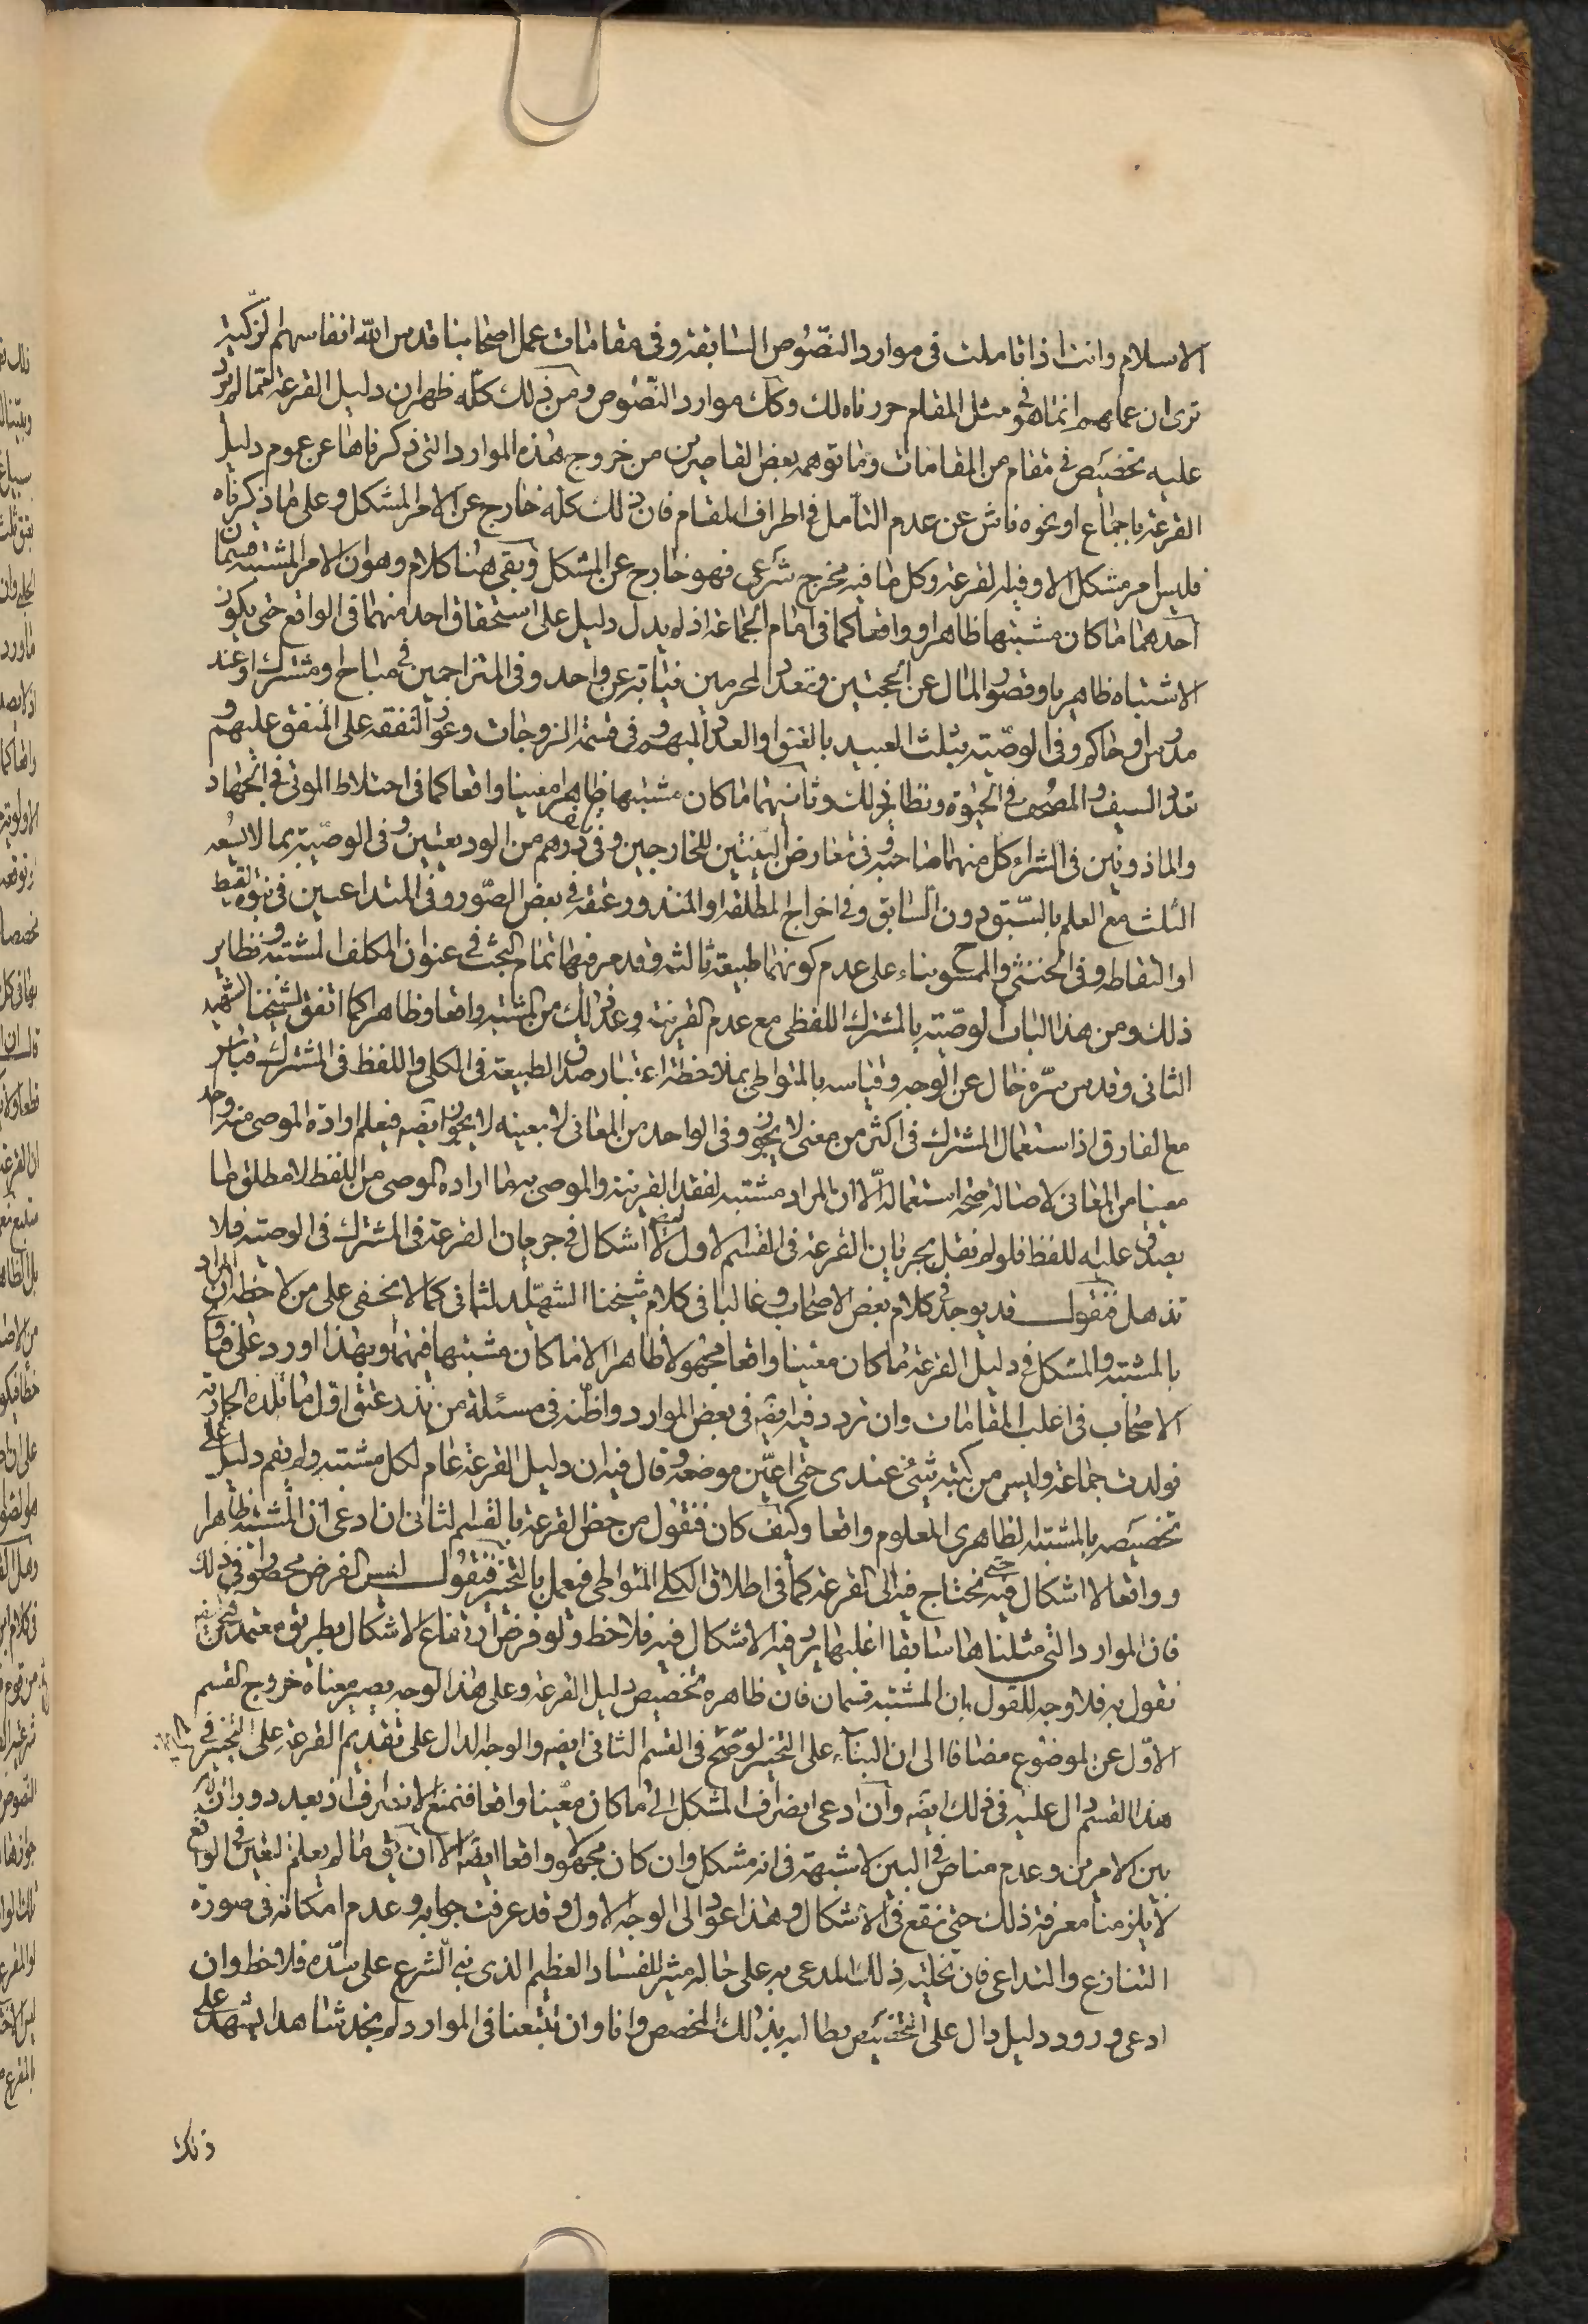 الاسلام وانت اذا تاملت فى موارد النصوص السابقة وفى مقامات عمل اصحابنا قدس الله انفاسهم الزكية
ترى ان عملهم انما هو فى مثل المقام حررناه لك وكك موارد النصوص ومن ذلك كله ظهر ان دليل القرعة مما لم يرد
عليه تخصيص فى مقام من المقامات وما توهمه بعض القاصرين من خروج هذه الموارد التى ذكرناها عن عموم دليل
القرعة باجماع او نحوه ناش عن عدم التأمل فى اطراف المقام فان ذلك كله خارج عن الامر المشكل وعلى ما ذكرناه
فليس امر مشكل الا وفيه القرعة وكل ما فيه مخرج شرعى فهو خارج عن المشكل وبقى هنا كلام وهو ان الامر المشتبه قسمان
احدهما ما كان مشتبها ظاهرا وواقعا كما فى امام الجماعة اذ لم يدل دليل على استحقاق احد منهما فى الواقع حتى يكون
الاشتباه ظاهريا وقصور المال عن الحجتين وتعدد المحرمين نيابة عن واحد وفى المتزاحمين فى مباح او مشترك او عند
مدرس او حاكم وفى الوصية بثلث العبيد بالعتق او العدد المبهم وفى قسمة الزوجات وعود النفقة على المنفق عليهم
تعدد السيف والمصحف فى الحبوة ونظائر ذلك وثانيهما ما كان مشتبها ظاهرا معينا واقعا كما فى اختلاط الموتى فى الجهاد
والماذونين فى الشراء كل منهما صاحبه وفى تعارض البينتين للخارجين وفى درهم من الوديعتين وفى الوصية بما لا يسعه
الثلث مع العلم بالسبق دون السابق وفى اخراج المطلقة او المنذور عتقه فى بعض الصور وفى المتداعيين فى بنوة لقيط
او التقاطه وفى الخنثى والممسوح بناء على عدم كونهما طبيعة ثالثة وقد مر فيها تمام البحث فى عنوان المكلف المشتبه ونظائر
ذلك ومن هذا الباب الوصية بالمشترك اللفظى مع عدم القرينة وعد ذلك من المشتبه واقعا وظاهرا كما اتفق لشيخنا الشهيد
الثانى وقدس سره خال عن الوجه وقياسه بالمتواطى بملاحظة اعتبار صدق الطبيعة فى الكلى واللفظ فى المشترك قياس
مع الفارق اذ استعمال المشترك فى اكثر من معنى لا يجوز وفى الواحد من المعانى لا بعينه لا يجوز ايضه فيعلم ارادة الموصى منه واحدا
معينا من المعانى لاصالة صحة استعماله الا ان المراد مشتبه لفقد القرينة والموصى به ما اراده الموصى من اللفظ لا مطلق ما
يصدق عليه اللفظ فلو لم نقل بجريان القرعة فى القسم الاول لا اشكال فى جريان القرعة فى المشترك فى الوصية فلا
تذهل فنقول قد يوجد فى كلام بعض الاصحاب وغالبا فى كلام شيخنا الشهيد الثانى كما لا يخفى على من لاحظه ان المراد
بالمشتبه والمشكل فى دليل القرعة ما كان معينا واقعا مجهولا ظاهرا لا ما كان مشتبها فيهما وبهذا اورد على فتوى
الاصحاب فى اغلب المقامات وان تردد فيه ايضه فى بعض الموارد واظنه فى مسئلة من نذر عتق اول ما تلده الجارية
فولدت جماعة وليس من كتبه شئ عندى حتى اعين موضعه وقال فيه ان دليل القرعة عام لكل مشتبه ولم يقم دليل على
تخصيصه بالمشتبه الظاهرى المعلوم واقعا وكيف كان فنقول من خص القرعة بالقسم الثانى ان ادعى ان المشتبه ظاهرا
وواقعا لا اشكال فيه حتى يحتاج فيه الى القرعة كما فى اطلاق الكلى المتواطى فيعمل بالتخيير فنقول ليس الفرض محصورا فى ذلك
فان الموارد التى مثلناها سابقا اغلبها يرد فيه الاشكال فيه فلاحظ ولو فرض ارتفاع الاشكال بطريق معتمد فنحن
نقول به فلا وجه للقول بان المشتبه قسمان فان ظاهره تخصيص دليل القرعة وعلى هذا الوجه يصير معناه خروج القسم
الاول عن الموضوع مضافا الى ان البناء على التخيير لو صح فى القسم الثانى ايضه والوجه الدال على تقديم القرعة على التخيير فى
هذا القسم دال عليه فى ذلك ايضه وان ادعى انصراف المشكل الى ما كان معينا واقعا فنمنع الانصراف اذ بعد دورانه
بين الامرين وعدم مناص فى البين لا شبهة فى انه مشكل وان كان مجهولا واقعا ايضا الا ان يق ما لم يعلم التعيين فى الواقع
لا يلزمنا معرفة ذلك حتى نقع فى الاشكال وهذا عود الى الوجه الاول وقد عرفت جوابه وعدم امكانه فى صورة
التنازع والتداعى فان تخلية ذلك المدعى به على حاله مثير للفساد العظيم الذى بنى الشرع على سده فلاحظ وان
ادعى ورود دليل دال على التخصيص يطالب بذلك المخصص وانا وان تتبعنا فى الموارد لم نجد شاهدا يشهد على
ذلك